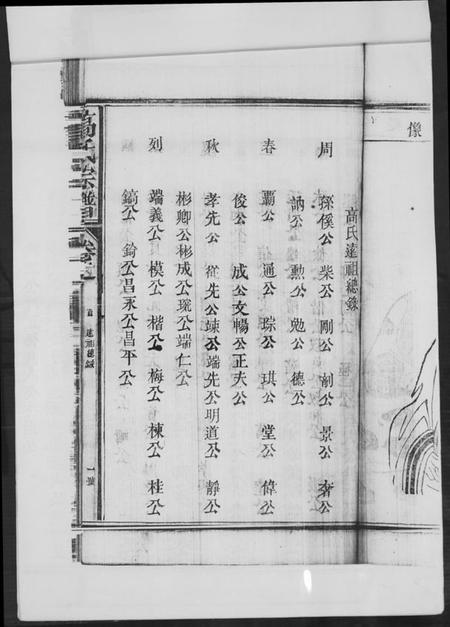 像
高氏遠祖總錄
周 孫傒公 柴公 剛公 創公 景公 奢公
訥公 勲公 勉公 德公
春 霸公 通公 琮公 琪公 堂公 偉公
俊公 成公 文暢公 正夫公
秋 孝先公 從先公 竦公 端先公 明道公 靜公
彬卿公 彬成公 瓏公 端仁公
列 端義公 模公 楷公 梅公 棟公 桂公
鎬公 錀公 昌永公 昌平公
高氏宗譜
首 遠祖總錄
一號